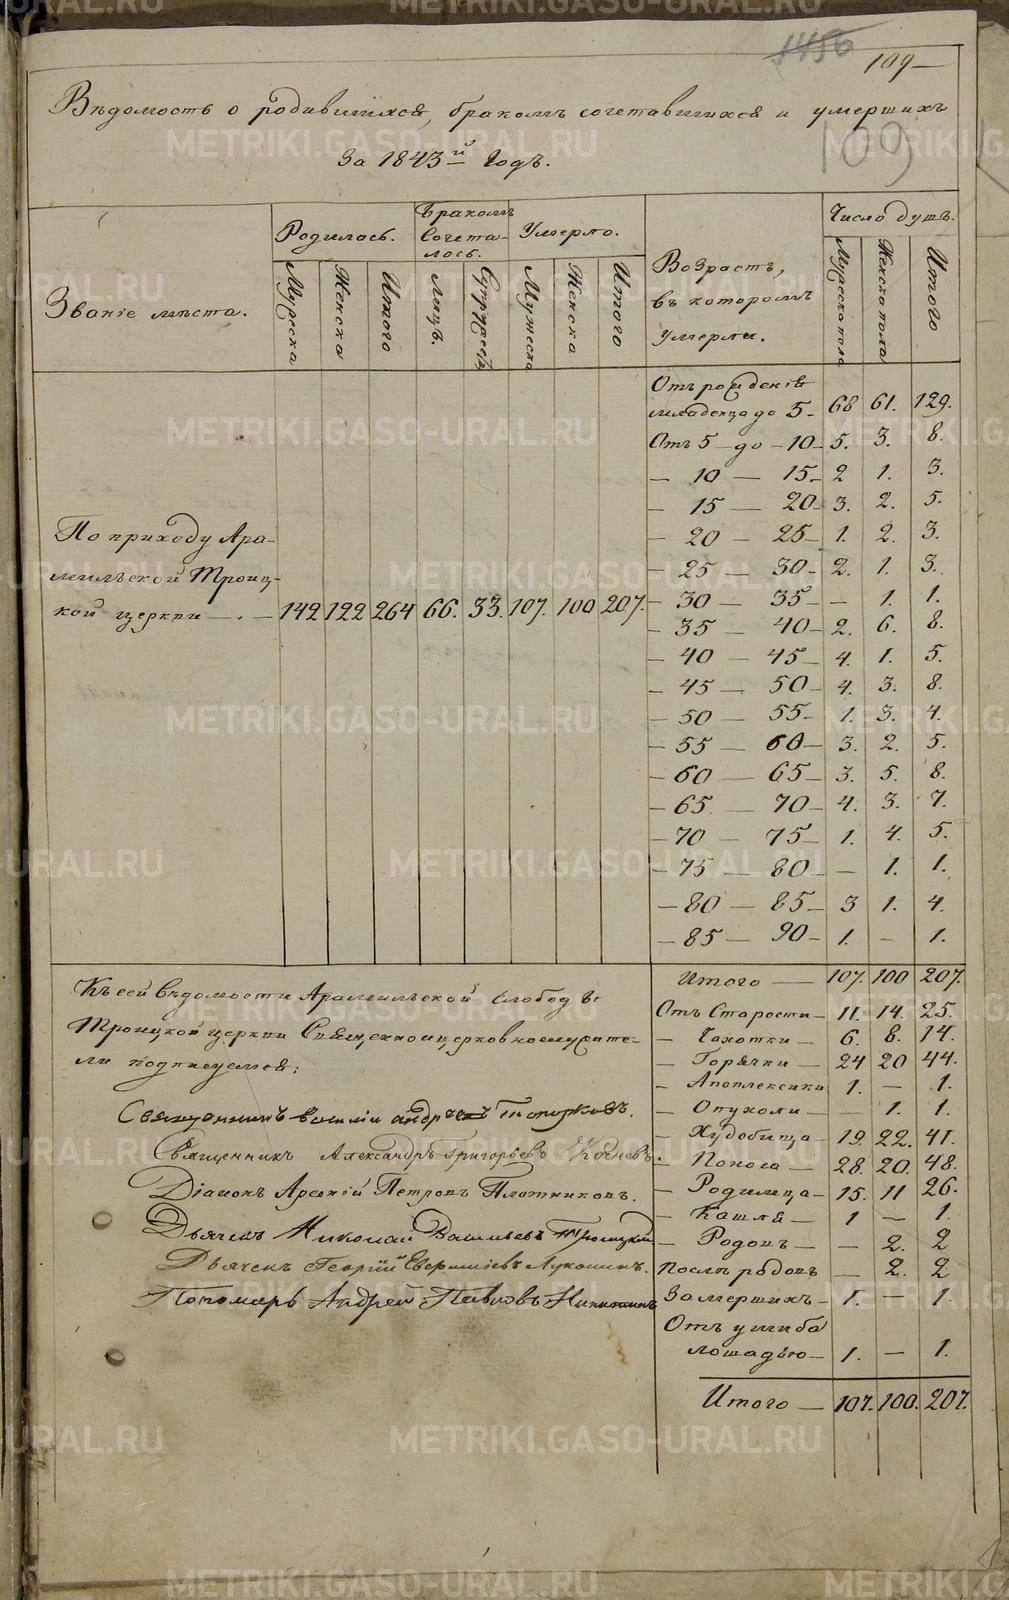 1456
109
Вѣдомость о родившихся, бракомъ сочетавшихся и умершихъ
109
За 1843й Годъ.
Званіе мѣста.
Родилось.
Бракомъ Сочета-лось.
Умерло.
Возрастъ, въ которомъ умерли.
Число душъ.
Мужеска
Женска
Итого
Лицъ.
Супружествъ
Мужеска
Женска
Итого
Мужеска пола
Женска пола
Итого
По приходу Ара-
мильской Троиц-
кой церкви — . — 142 122 264 66. 33. 107. 100 207.
Отъ рожденія
младенца до 5 - 68 61. 129.
Отъ 5 - до - 10 - 5. 3. 8.
— 10 — 15 - 2 1. 3.
— 15 — 20 - 3. 2. 5.
— 20 — 25 - 1. 2. 3.
— 25 — 30 - 2. 1. 3.
— 30 — 35 - — 1. 1.
— 35 — 40 - 2. 6. 8.
— 40 — 45 - 4. 1. 5.
— 45 — 50 - 4. 3. 8.
— 50 — 55 - 1. 3. 4.
— 55 — 60 - 3. 2. 5.
— 60 — 65 - 3. 5. 8.
— 65 — 70 - 4. 3. 7.
— 70 — 75 - 1. 4. 5.
— 75 — 80 - — 1. 1.
— 80 — 85 - 3 1. 4.
— 85 — 90 - 1. — 1.
Итого — 107. 100 207.
Отъ Старости — 11. 14. 25.
— Чахотки — 6. 8. 14.
— Горячки — 24 20 44.
— Апоплексики 1. — 1.
— Опухоли — 1. 1.
— Худобища — 19. 22. 41.
— Поноса — 28. 20. 48.
— Родимца — 15. 11 26.
— Кашля — 1 — 1.
— Родовъ — — 2. 2
Послѣ родовъ — 2. 2
Замершихъ — 1. — 1.
Отъ ушиба
лошадью — 1. — 1.
Итого — 107. 100. 207.
Къ сей вѣдомости Арамильской слободы
Троицкой церкви Священноцерковнослужите-
ли подписуемся:
Священникъ Василій Андреевъ Топорковъ.
Священникъ Александръ Григорьевъ
Діаконъ Арсеній Петровъ Плотниковъ.
Дьячекъ Николай Васильевъ Троицкій
Дьячекъ Георгій Лукашинъ.
Пономарь Андрей Павловъ Никитинъ
METRIKI.GASO-URAL.RU